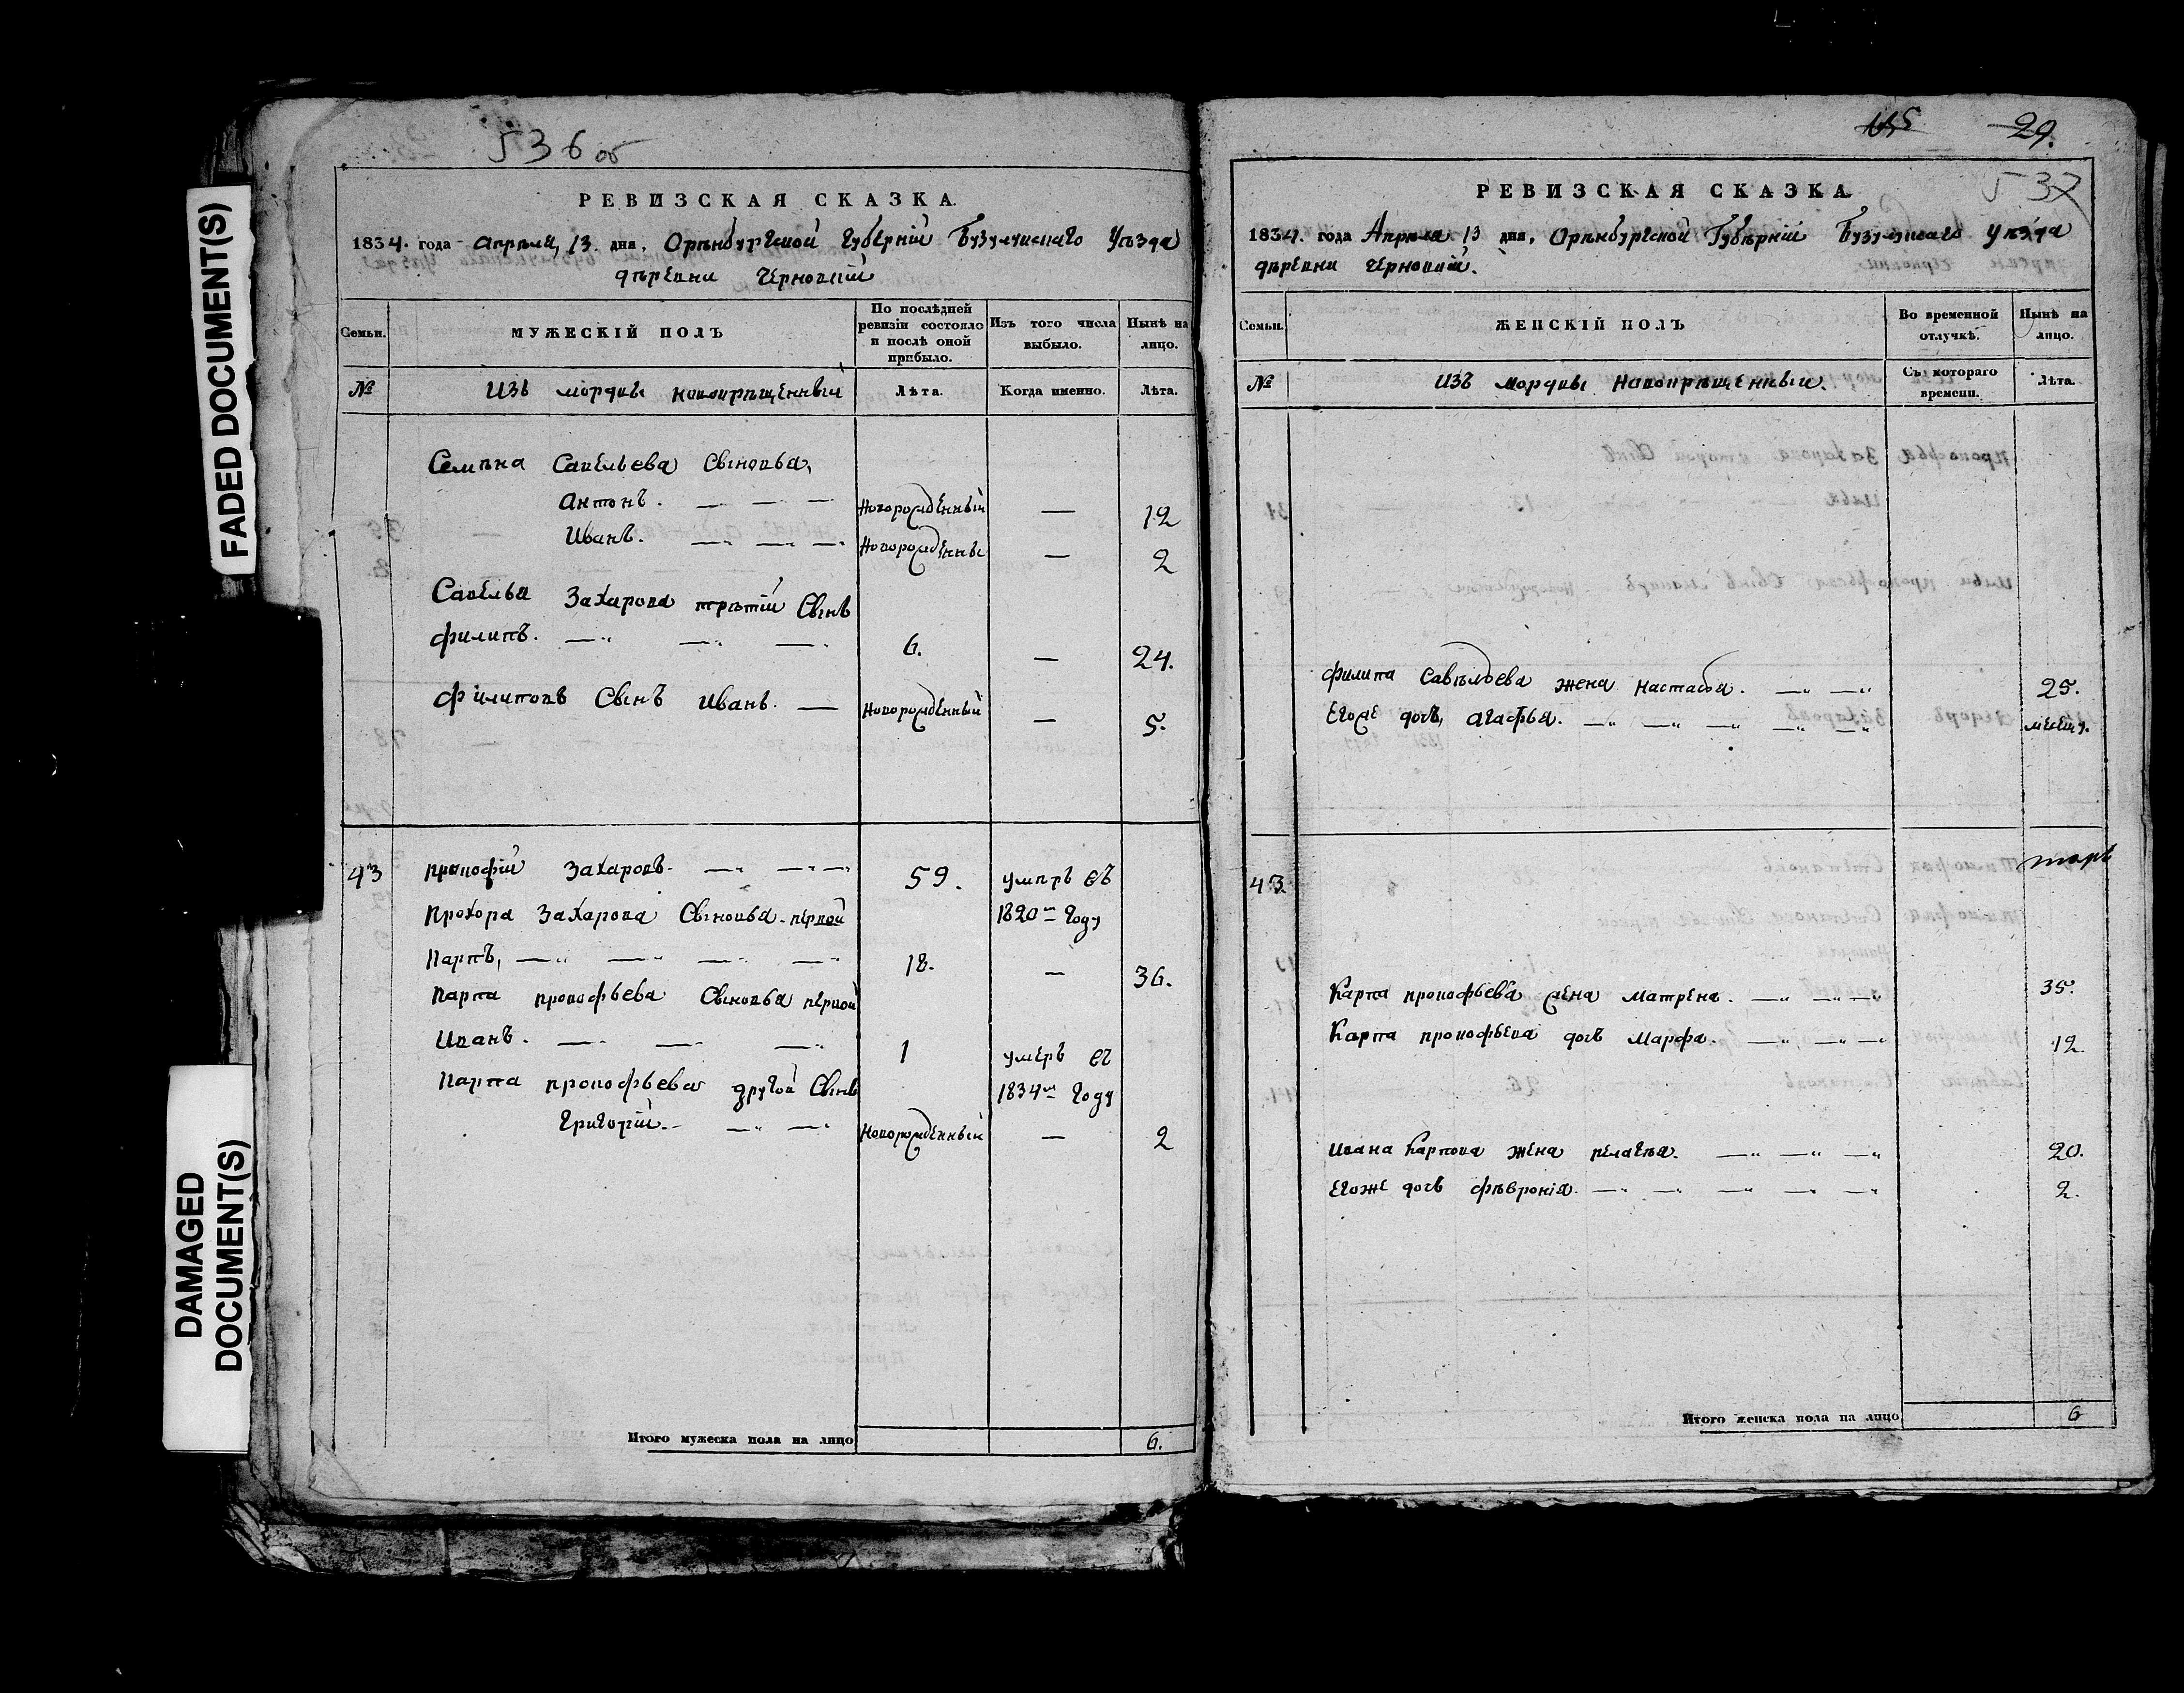 FADED DOCUMENT(S)
DAMAGED DOCUMENT(S)
536 об
РЕВИЗСКАЯ СКАЗКА.
1834. года апреля, 13. дня, Оренбургской губернiи Бузулукскаго Уезда
деревни Черновкiй
Семьи.
МУЖЕСКIЙ ПОЛЪ
По послѣдней ревизiи состояло и послѣ оной прибыло.
Изъ того числа выбыло.
Нынѣ на лицо.
№
изъ мордвы новокрещенныи
Лѣта.
Когда именно.
Лѣта.
Савельева Сыновья,
Антонъ. Новорожденный — 12
Иванъ. Новорожденны — 2
Савелья Захарова третiй Сынъ
филипъ. 6. — 24.
Филиповъ Сынъ Иванъ. Новорожденный — 5.
43 прокофiй Захаровъ. 59. умеръ въ
Прохора Захарова Сыновья первой 1820м году
Карпъ, 18. — 36.
Карпа прокофьева Сыновья первой
Иванъ. 1 умеръ въ
Карпа прокофьева другой Сынъ 1834м году
григорiй. Новорожденный — 2
Итого мужеска пола на лицо 6.
29.
537
РЕВИЗСКАЯ СКАЗКА.
1834. года Апреля 13 дня, Оренбургской Губернiи Бузулукскаго Уезда
деревни Черновкiй.
Семьи.
ЖЕНСКIЙ ПОЛЪ
Во временной отлучкѣ.
Нынѣ на лицо.
№
изъ мордвы Новокрещенныи.
Съ котораго времени.
Лѣта.
филипа Савельева жена настасья. 25.
Егоже дочь, агафья.
43
Карпа прокофьева жена матрена. 35.
Карпа прокофьева дочь Марфа. 12.
Ивана Карпова жена пелагея. 20.
Егоже дочь февронiя. 2.
Итого женска пола на лицо 6